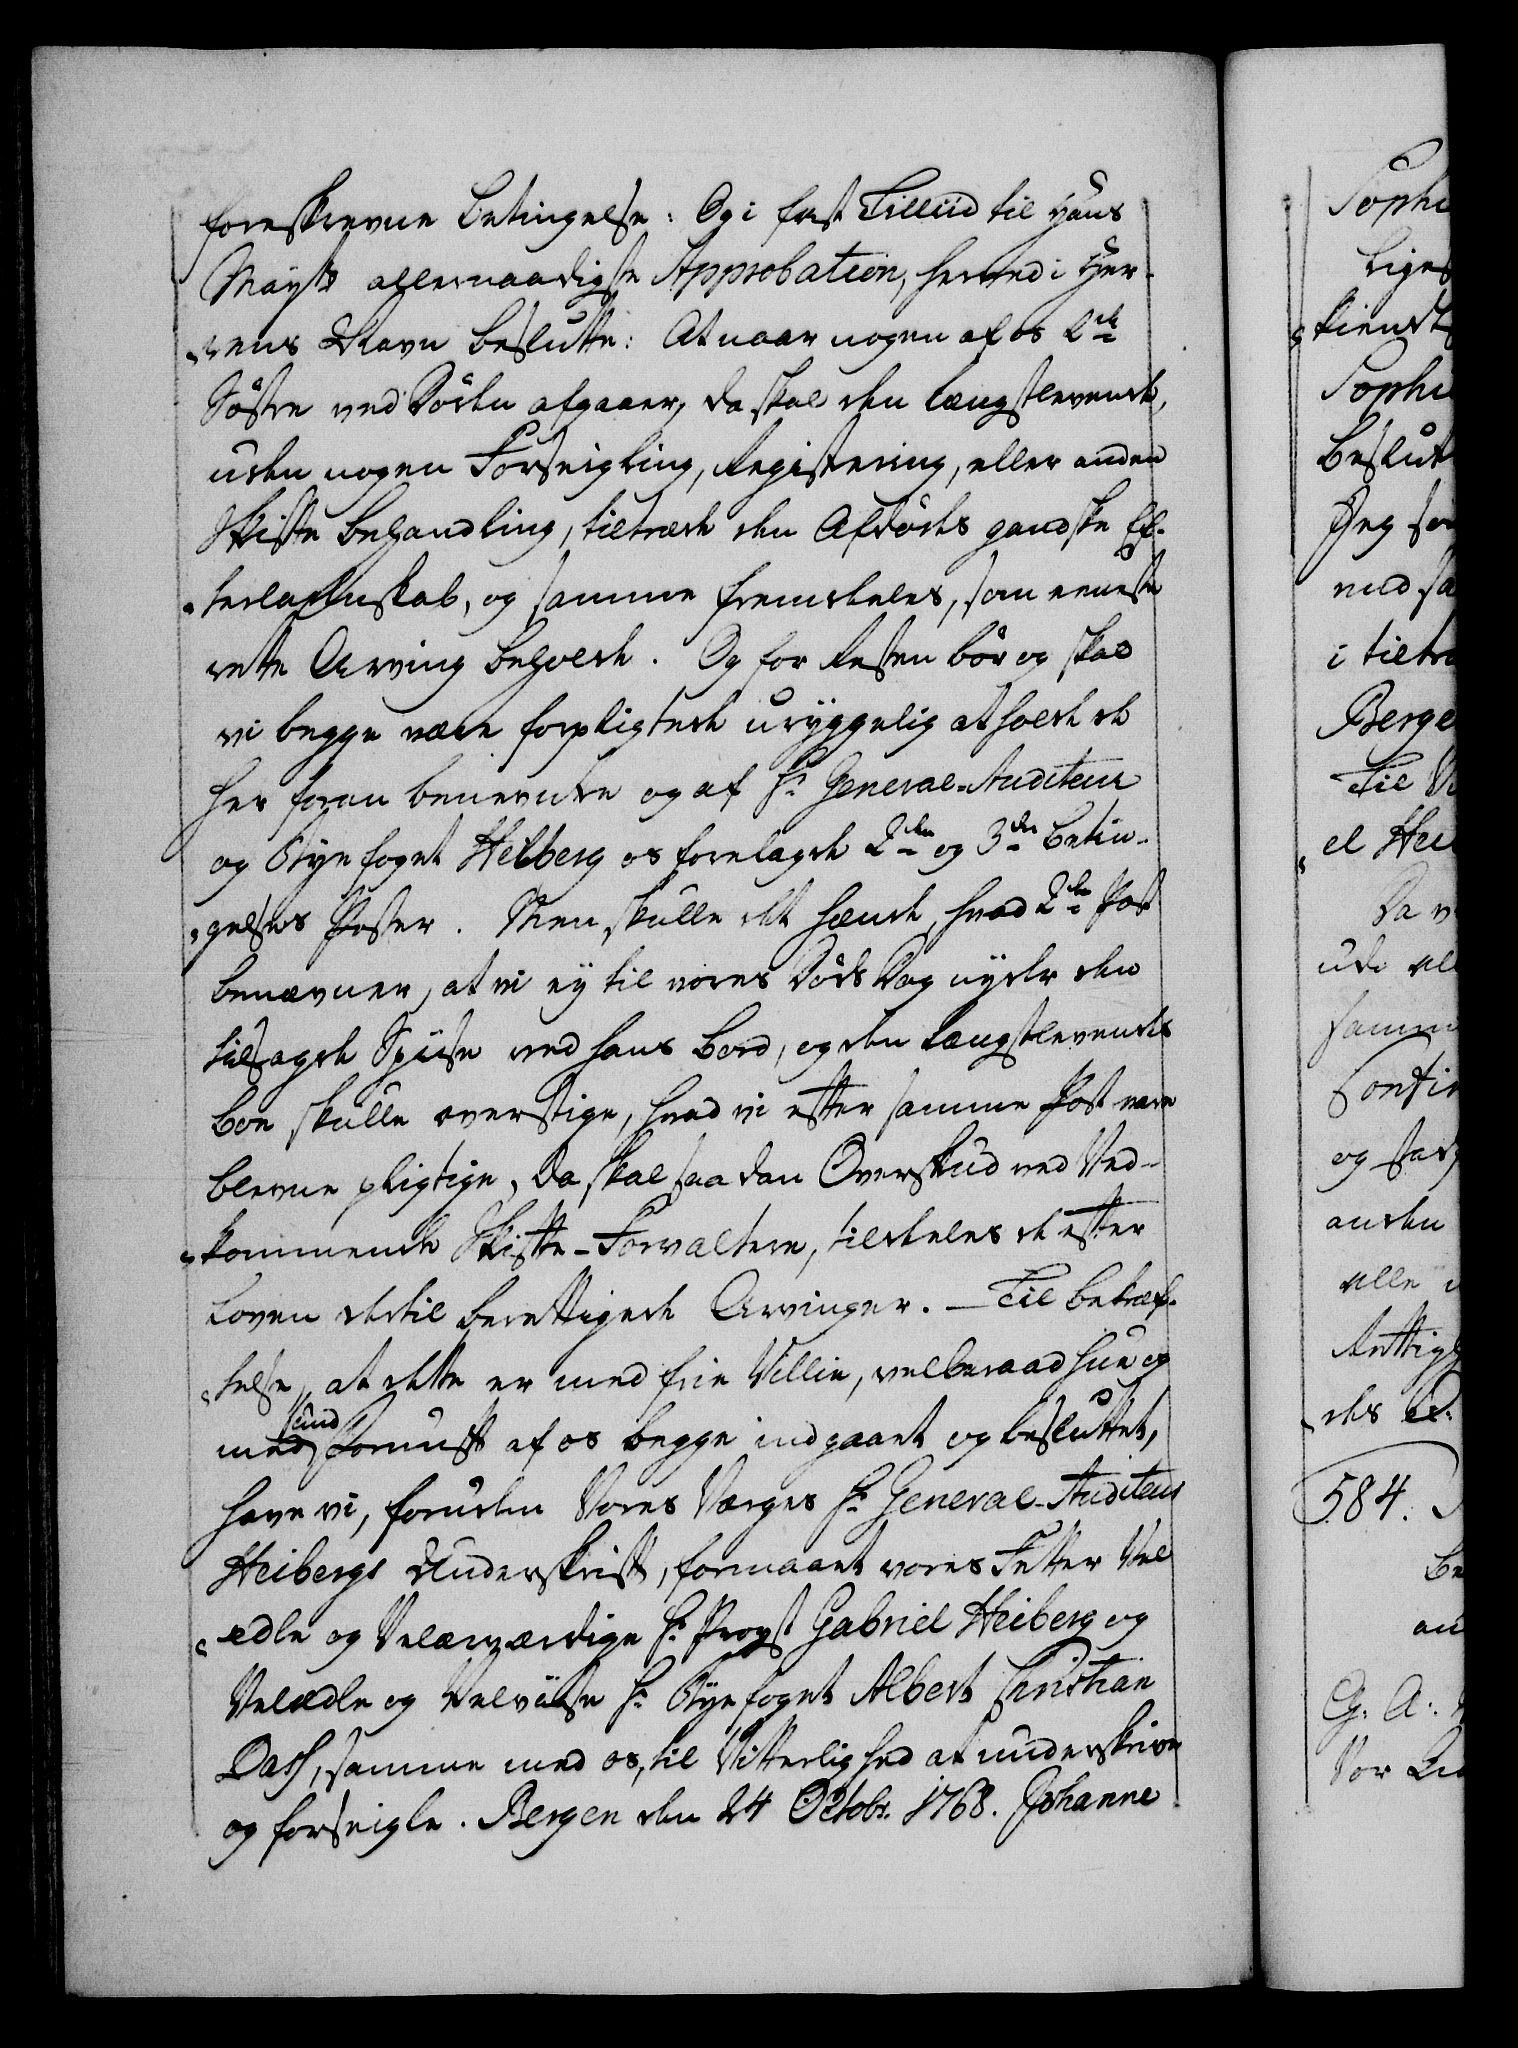 foreskrevne Betingelse: Og i fast Tilliid til Hans
Mayts allernaadigste Approbation, hermed i Her-
rens Navn beslutte: At naar nogen af os 2de
Söstre ved Döden afgaaer, da skal den længstlevende,
uden nogen Forseigling, Registering, eller anden
Skifte Behandling, tiltræde den Afdödes gandske Ef-
terladenskab, og samme fremdeles, som eeneste
rette Arving beholde. Og for Resten bör og skal
vi begge være forpligtede uryggelig at holde de
her foran benevnte og af Hr. General-Auditeur
og Byefoget Heiberg os forelagde 2den og 3die Betin-
gelses Poster. Men skulle det hænde, hvad 2den Post
benævner, at vi ey til vores Döds Dag nyder den
tilsagde Spiise ved hans Bord, og den længstlevendes
Boe skulle overstige, hvad vi efter samme Post være
blevne pligtige, da skal saadan Overskud ved Ved-
kommende Skifte-Forvaltere, tildeles de efter
Loven dertil berettigede Arvinger. – Til Bekræf-
telse, at dette er med frie Villie, velberaad Hue og
med sund Fornuft af os begge indgaaet og besluttet,
have vi, foruden Vores Værges Hr. General-Auditeur
Heibergs Underskrift, formaaet vores Fetter Vel
ædle og Velærværdige Hr. Provst Gabriel Heiberg og
Velædle og Velviise Hr. Byefoget Albert Christian
Dass, samme med os, til Vitterlighed at underskrive
og forseigle. Bergen den 24 Octobr. 1768. Johanne
Sophi
Liges
kiendt
Sophi
Beslut
Jeg so
med sa
i tiltræ
Berge
Til V
el Hei
Da v
udi all
samm
Confir
og stad
anden
alle
Rettigh
des
584.
Be
an
G. A:
Vor